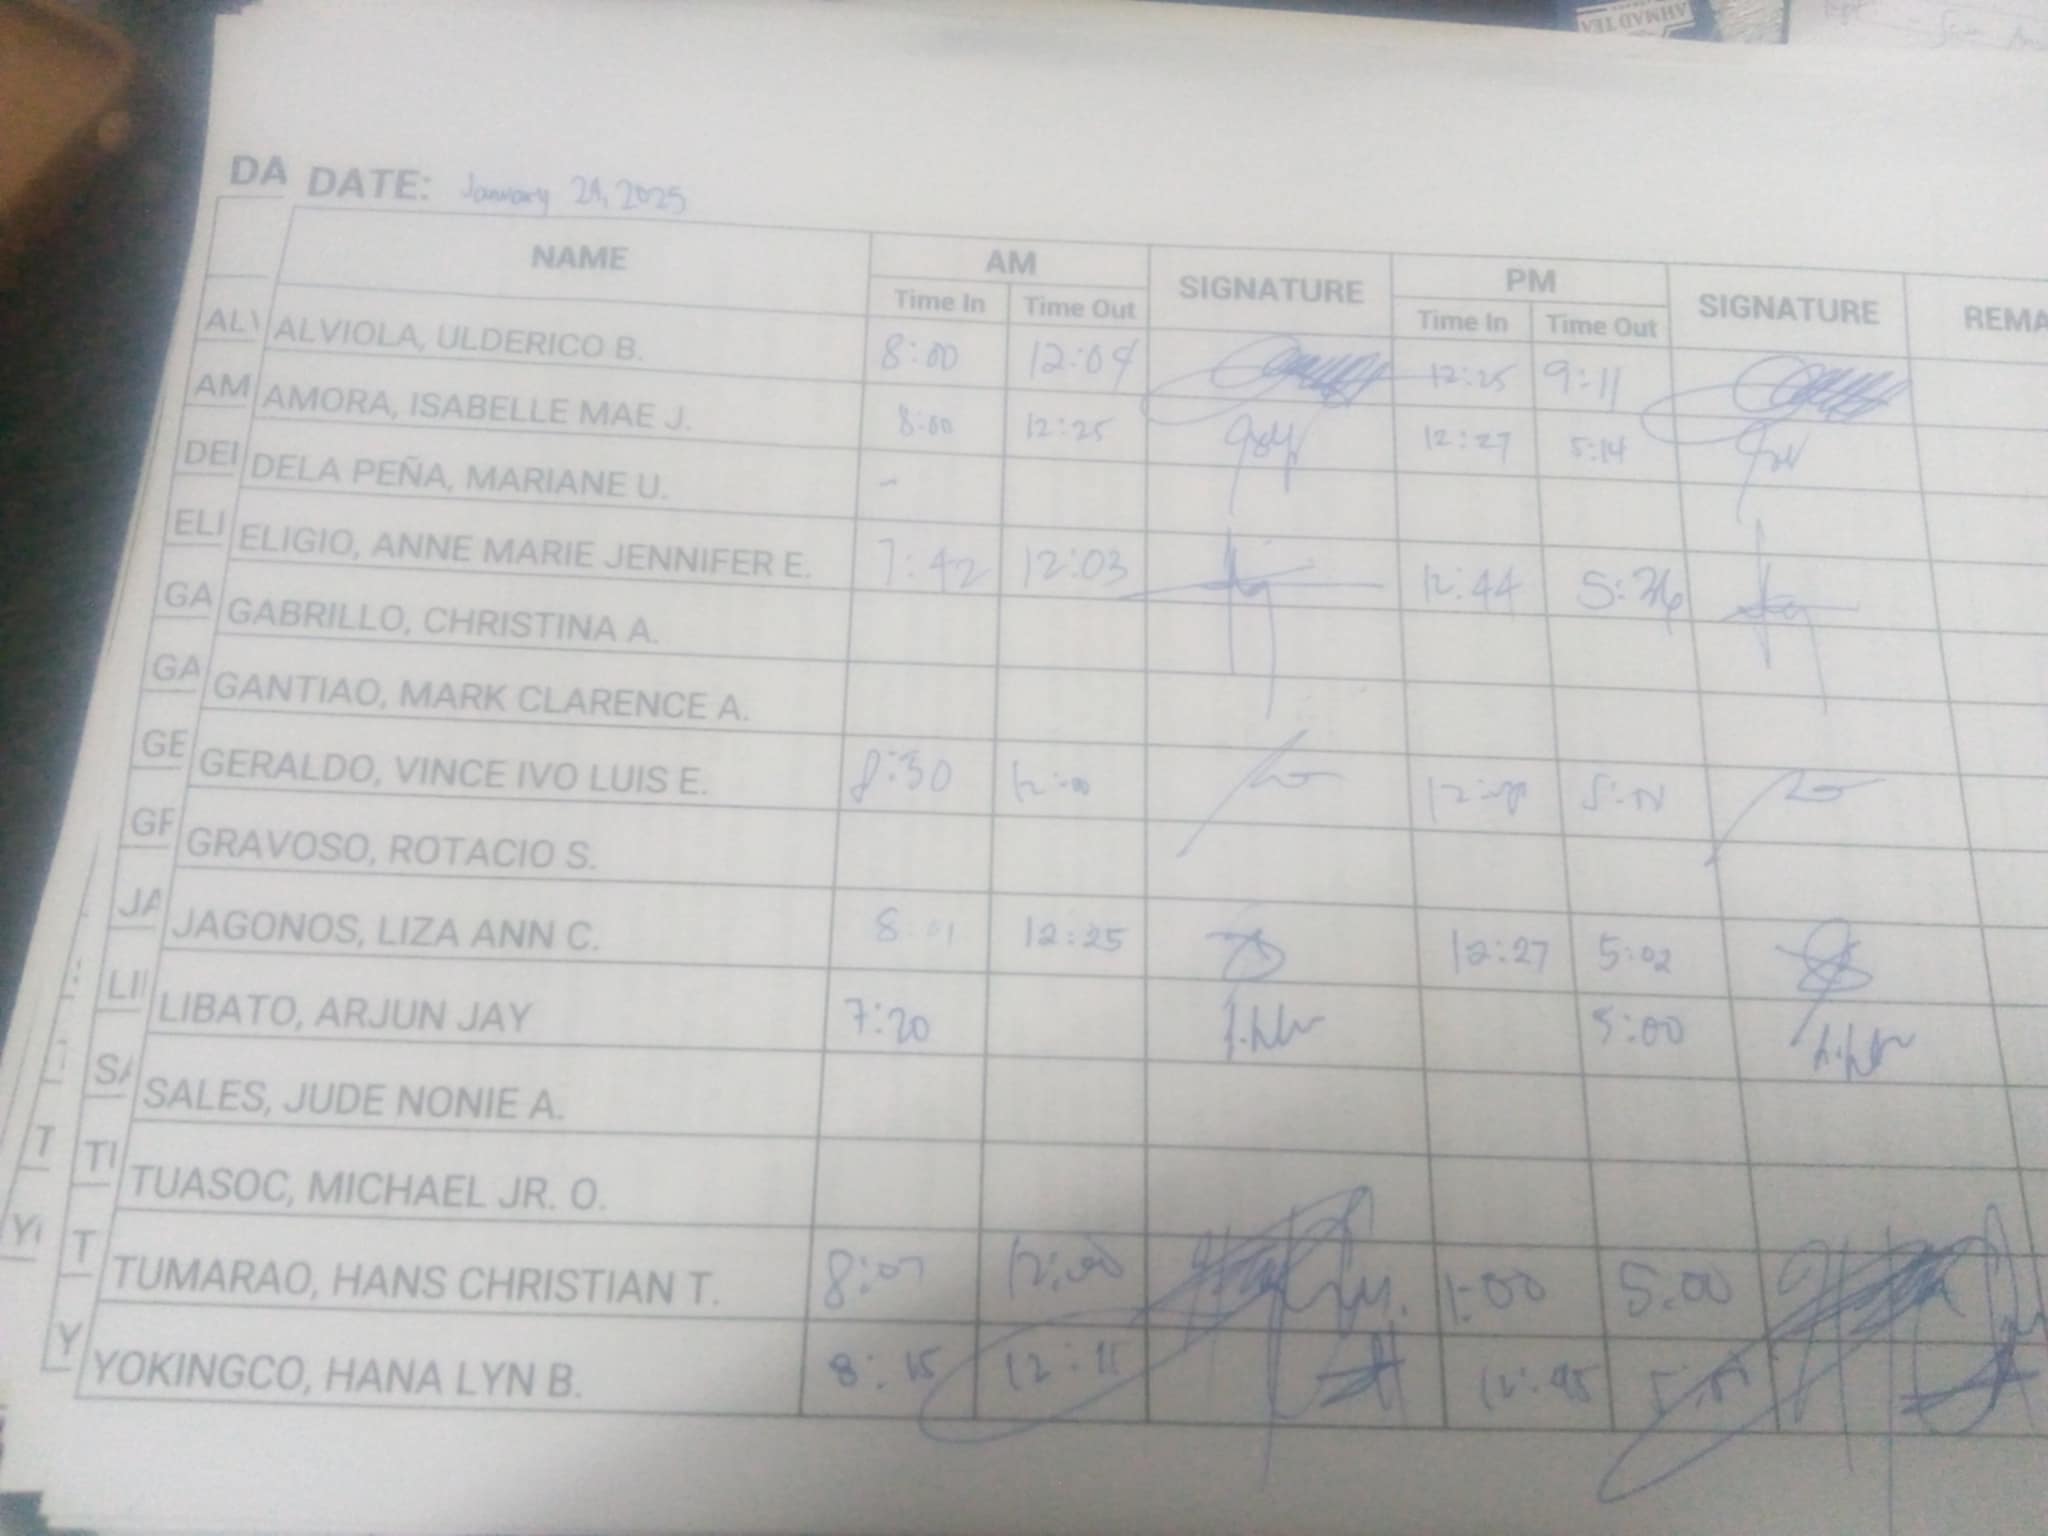 AHMAD TEA
DA DATE: January 29, 2025
NAME AM SIGNATURE PM SIGNATURE REMA
Time In Time Out Time In Time Out
ALV ALVIOLA, ULDERICO B. 8:00 12:04 12:25 9:11
AM AMORA, ISABELLE MAE J. 8:00 12:25 12:27 5:14
DEL DELA PEÑA, MARIANE U. -
ELI ELIGIO, ANNE MARIE JENNIFER E. 7:42 12:03 12:44 5:36
GA GABRILLO, CHRISTINA A.
GA GANTIAO, MARK CLARENCE A.
GE GERALDO, VINCE IVO LUIS E. 8:30 12:00
GR GRAVOSO, ROTACIO S.
JA JAGONOS, LIZA ANN C. 8:01 12:25 12:27 5:02
LI LIBATO, ARJUN JAY 7:20 5:00
SA SALES, JUDE NONIE A.
T TU TUASOC, MICHAEL JR. O.
Y T TUMARAO, HANS CHRISTIAN T. 8:07 12:00 1:00 5:00
Y YOKINGCO, HANA LYN B. 8:15 12:11 12:45